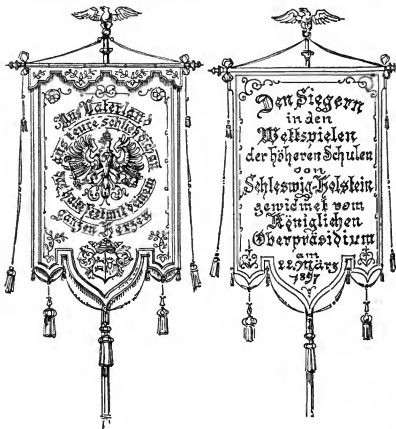 Ans Vaterland
ans teure, schließ dich an
das halte fest mit deinem
ganzen Herzen
Den Siegern
in den
Wettspielen
der höheren Schulen
von
Schleswig-Holstein
gewidmet vom
Königlichen
Oberpräsidium
am
22. März
1897